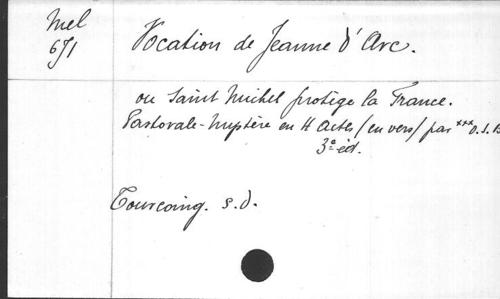 Mel
671
Vocation de Jeanne d'Arc.
ou Saint Michel protège la France.
Pastorale-Mystère en 4 Actes (en vers) par *** O.S.B
3e éd.
Tourcoing. s.d.